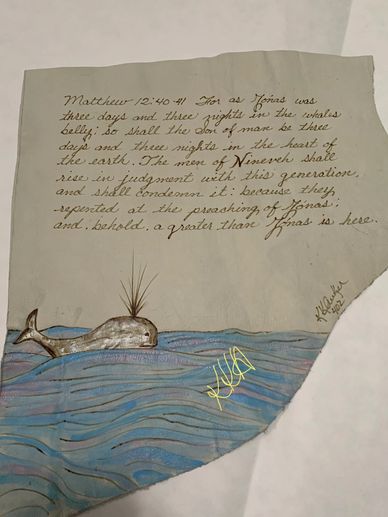 Matthew 12:40-41 For as Jonas was
three days and three nights in the whales
belly; so shall the Son of man be three
days and three nights in the heart of
the earth. The men of Nineveh shall
rise in judgment with this generation,
and shall condemn it: because they
repented at the preaching of Jonas;
and, behold, a greater than Jonas is here.
'02